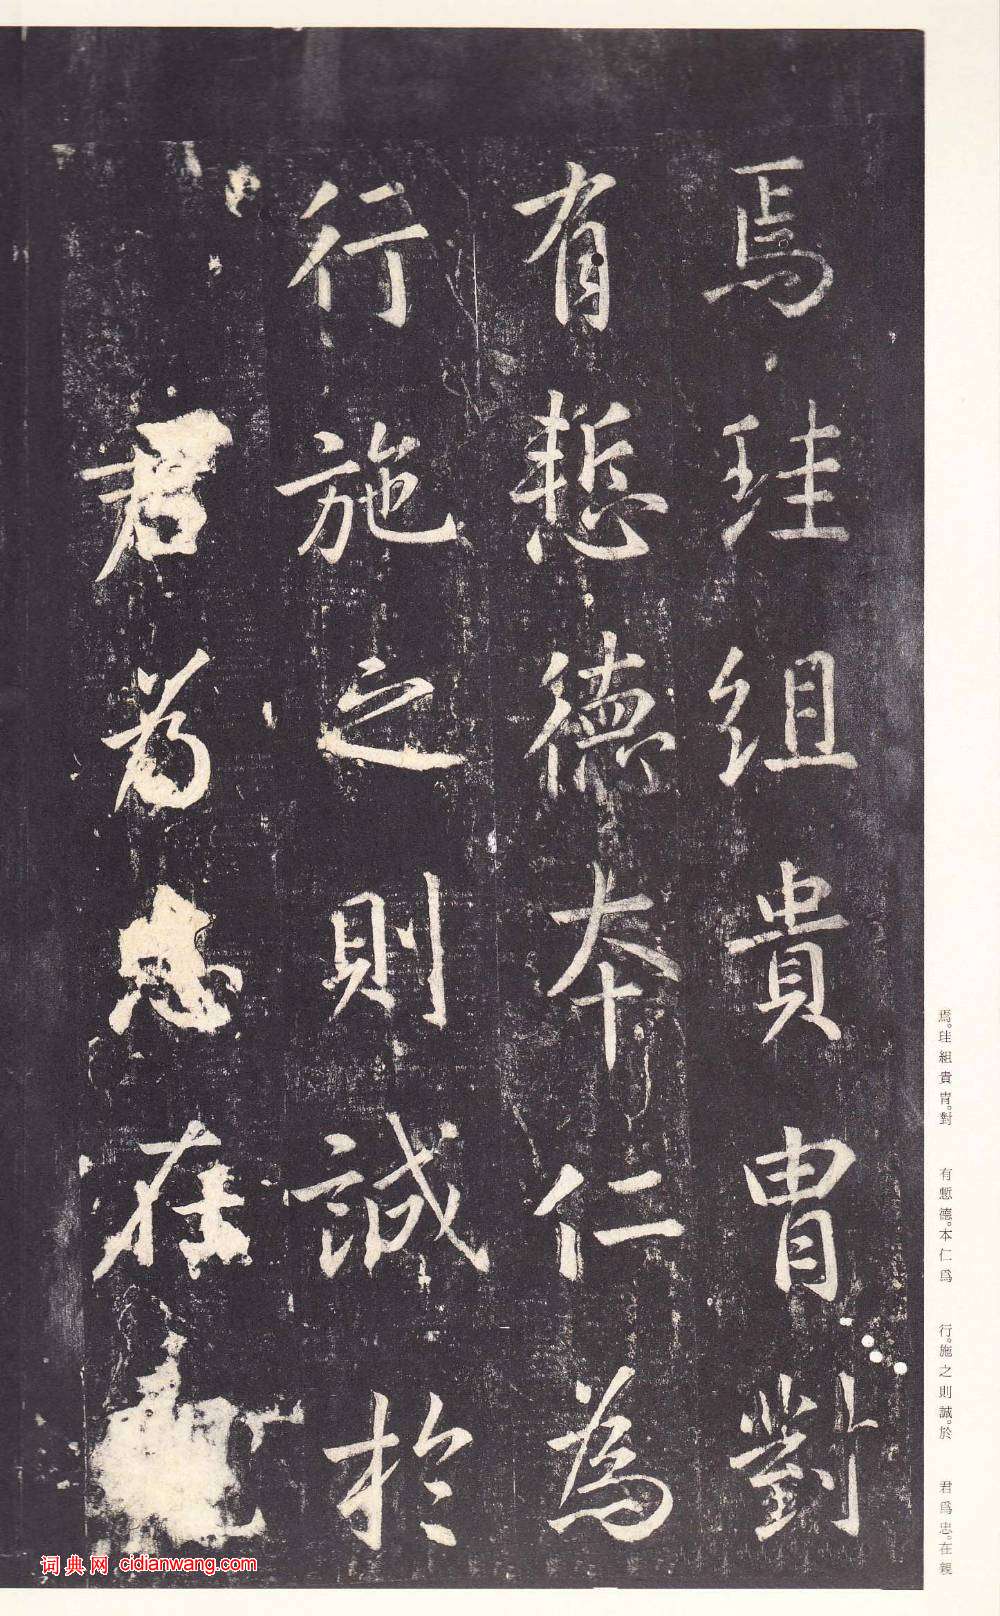 焉珪組貴冑對
有慙德本仁為
行施之則誠於
君為忠在
焉。珪組貴冑。對
有慙德。本仁爲
行。施之則誠。於
君爲忠。在親
词典网 cidianwang.com